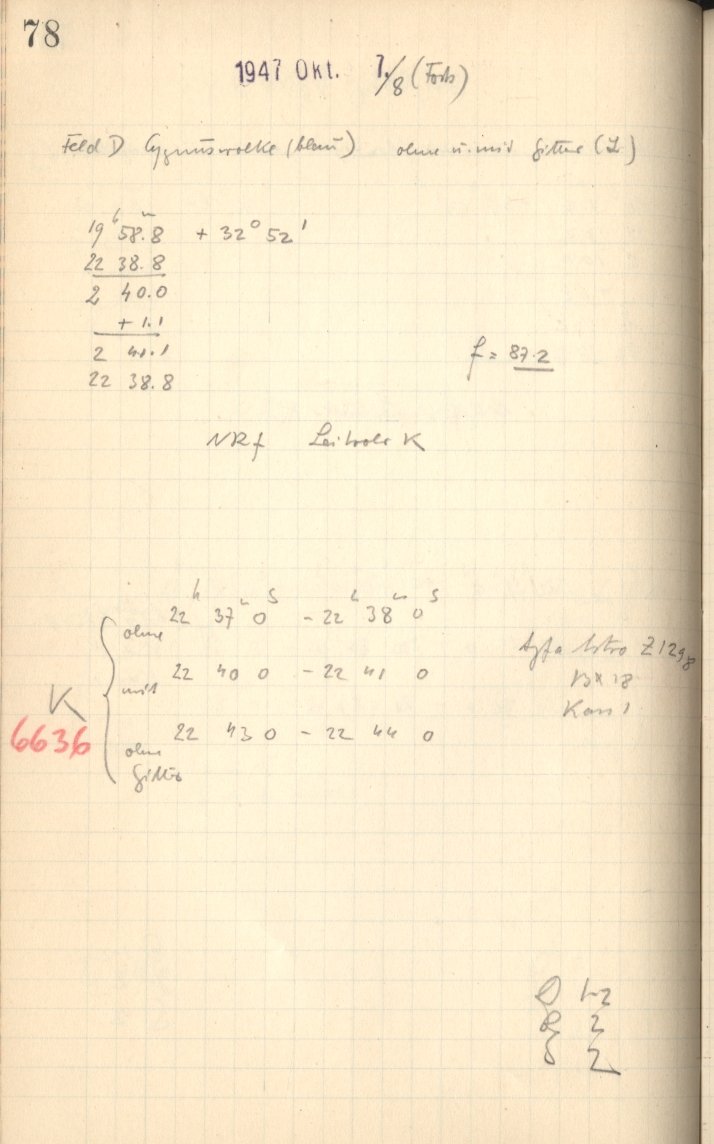 78
1947 Okt. 7./8 (Forts)
Feld D Cygnuswolke (blau) ohne u. mit Gitter (L)
19ʰ 58ᵐ.8 + 32° 52'
22 38.8
2 40.0
+ 1.1
2 41.1
22 38.8
f = 87.2
NRf Leitrohr K
ohne 22ʰ 37ᵐ 0ˢ - 22ʰ 38ᵐ 0ˢ
mit 22 40 0 - 22 41 0
ohne Gitter 22 43 0 - 22 44 0
K
6636
Agfa Astro Z1298
Kass 1
1-2
2
2